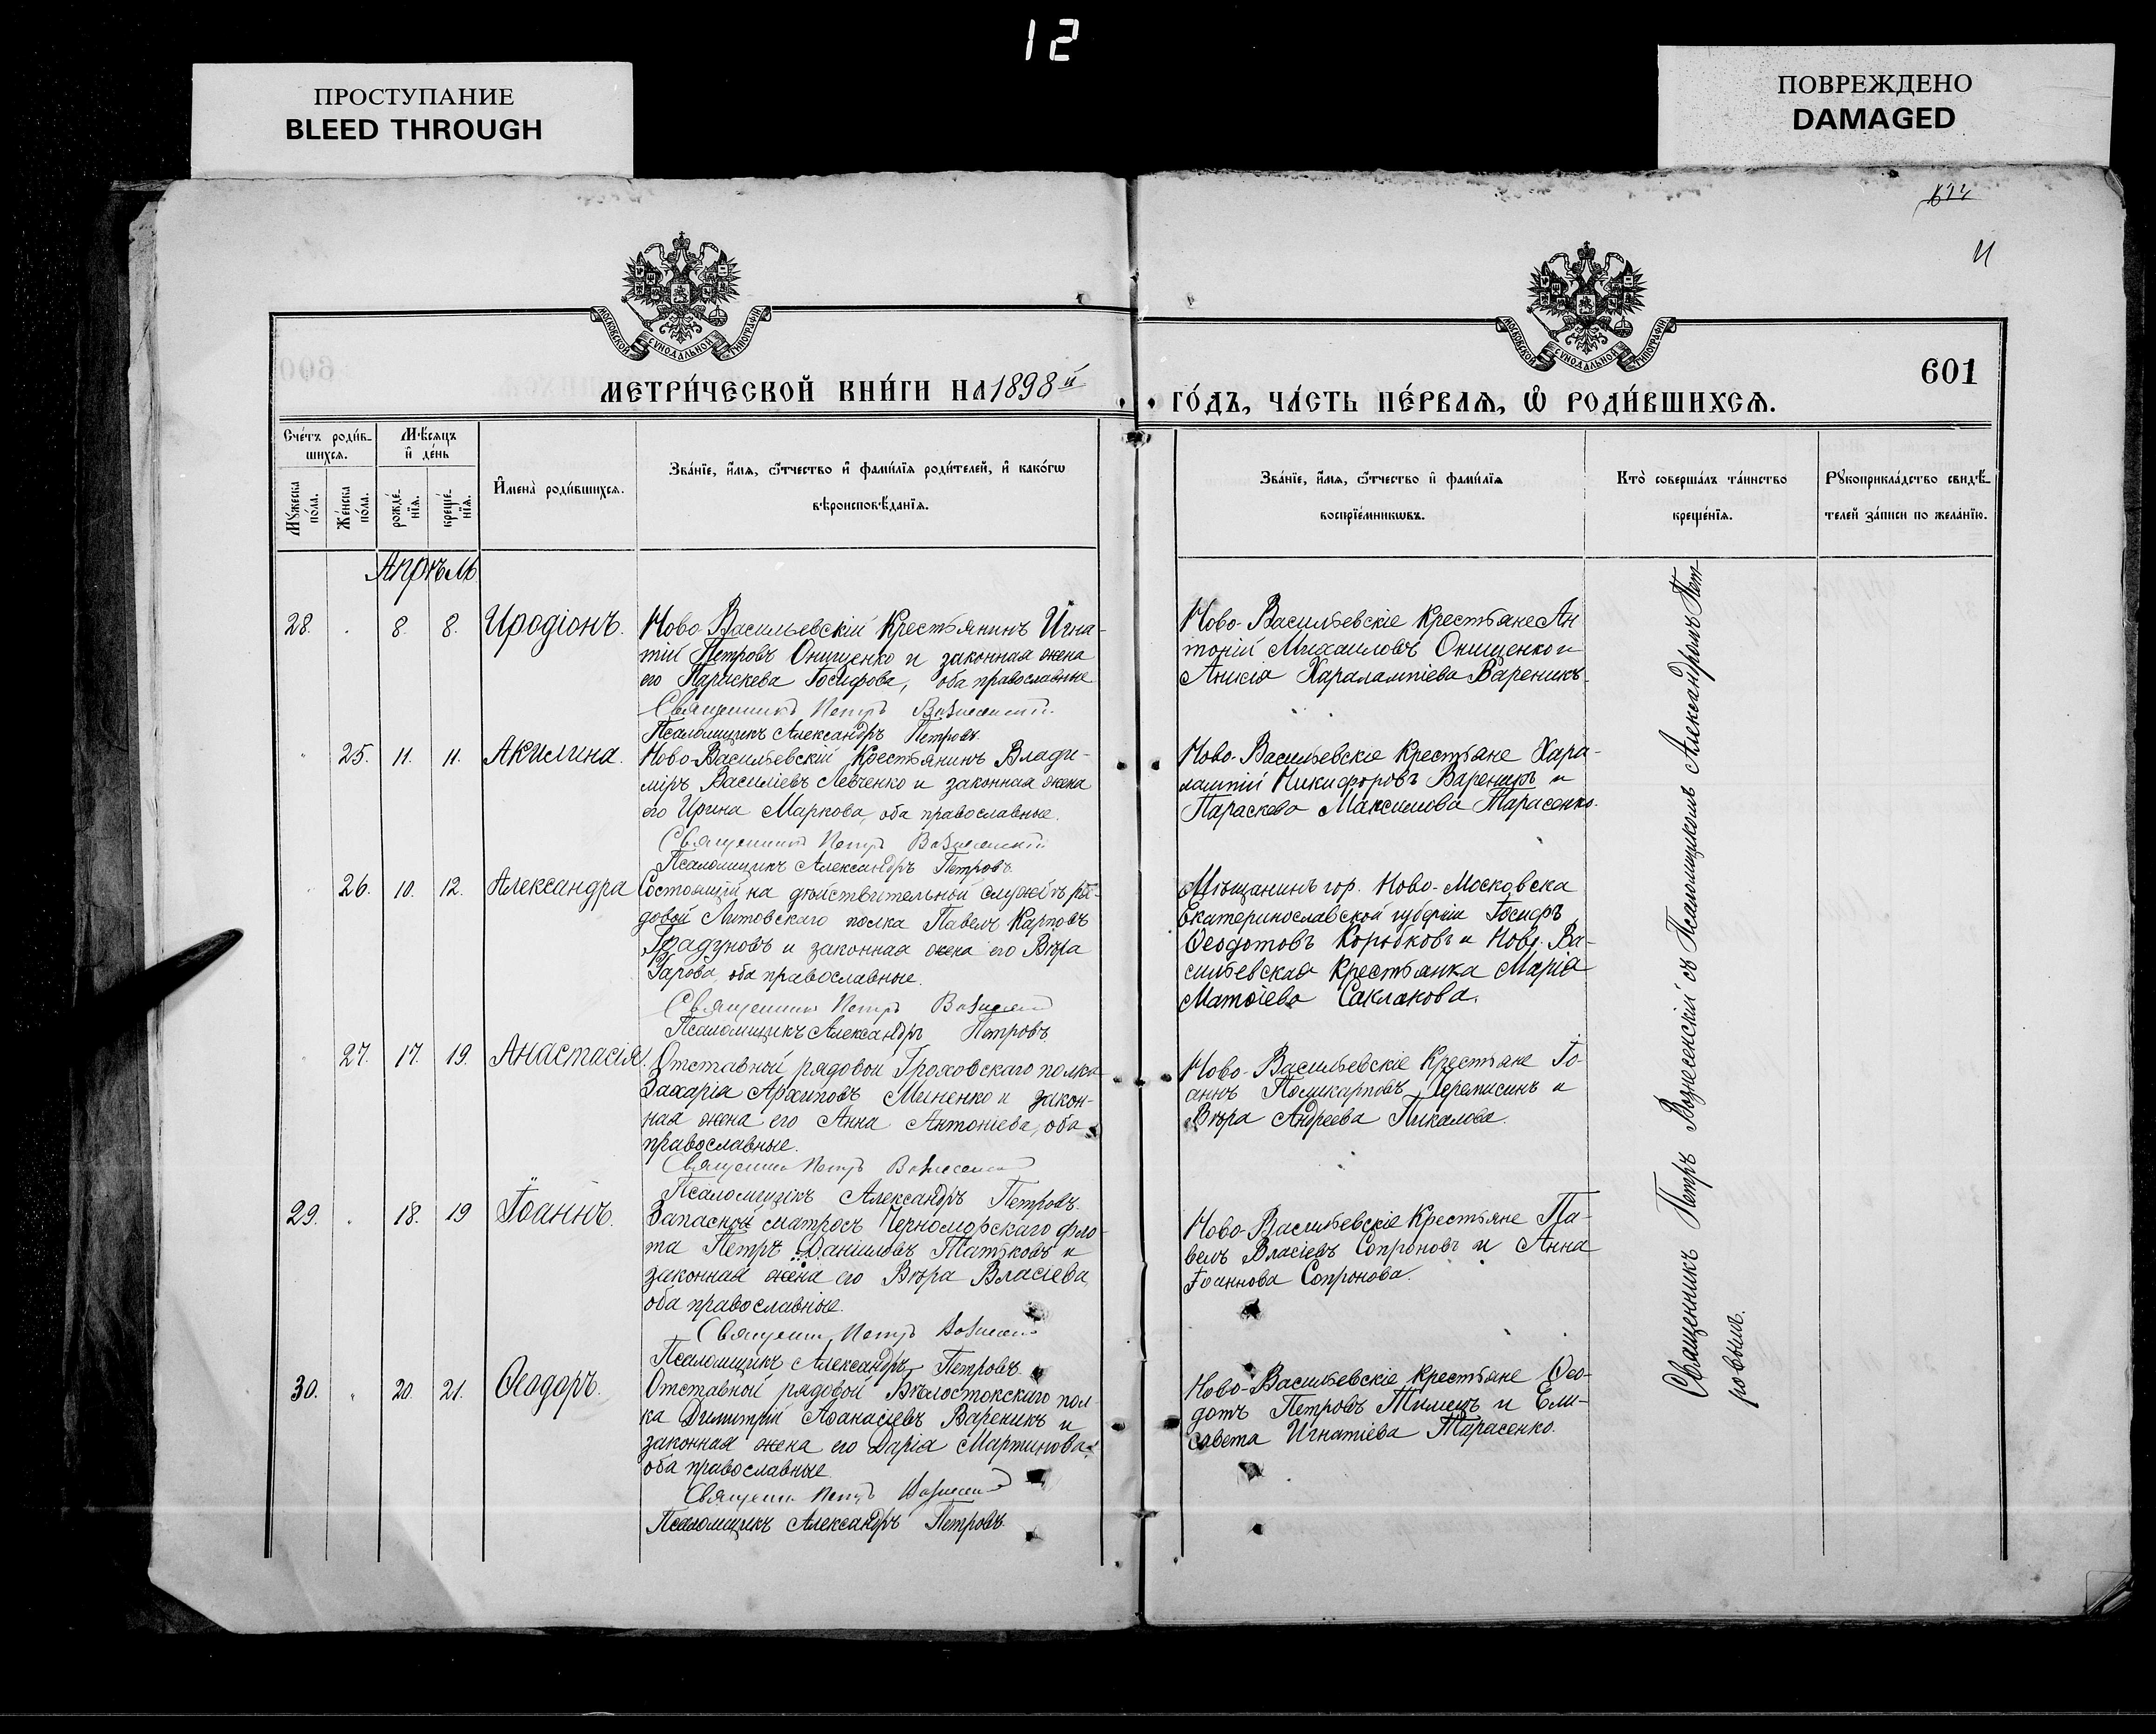 12
ПРОСТУПАНИЕ
BLEED THROUGH
ПОВРЕЖДЕНО
DAMAGED
11
МОСКОВСКОЙ СѴНОДАЛЬНОЙ ТИПОГРАФІИ
МОСКОВСКОЙ СѴНОДАЛЬНОЙ ТИПОГРАФІИ
601
МЕТРИ́ЧЕСКОЙ КНИ́ГИ НА 1898й
ГО́ДЪ, ЧА́СТЬ ПЕ́РВАѦ, Ѡ РОДИ́ВШИХСѦ.
Сче́тъ роди́вшихсѧ.
Мꙋ́жеска по́ла.
Же́нска по́ла.
Мѣ́сѧцъ и҆ де́нь
рожде́нїѧ.
креще́нїѧ.
И҆мена̀ роди́вшихсѧ.
Зва́нїе, и҆́мѧ, ѻ҆́тчество и҆ фами́лїѧ роди́телей, и҆ како́гѡ
вѣроисповѣ́данїѧ.
Зва́нїе, и҆́мѧ, ѻ҆́тчество и҆ фами́лїѧ
воспрїе́мникѡвъ.
Кто̀ соверша́лъ та́инство
креще́нїѧ.
Рꙋкоприкла́дство свидѣ́-
телей за́писи по жела́нїю.
Апрѣль
28. 8. 8. Иродіонъ.
Ново-Васильевскій Крестьянинъ Игна-
тій Петровъ Онищенко и законная жена
его Параскева Іосифова, оба православные
Священникъ Петръ Вознесенскій
Псаломщикъ Александръ Петровъ
Ново-Васильевскіе Крестьяне Ан
тоній Михаиловъ Онищенко и
Анисія Харалампіева Вареникъ.
25. 11. 11. Акилина.
Ново-Васильевскій Крестьянинъ Влади-
міръ Василіевъ Левченко и законная жена
его Ирина Маркова, оба православные.
Священникъ Петръ Вознесенскій
Псаломщикъ Александръ Петровъ.
Ново-Васильевскіе Крестьяне Хара-
лампій Никифоровъ Вареникъ и
Параскева Максимова Тарасенко.
26. 10. 12. Александра
Состоящій на дѣйствительной службѣ ря-
довой Литовскаго полка Павелъ Карповъ
и законная жена его Вѣра
оба православные.
Священникъ Петръ Вознесенскій
Псаломщикъ Александръ Петровъ.
Мѣщанинъ гор. Ново-Московска
Екатеринославской губерніи Іосифъ
Ѳеодотовъ Коробковъ и Ново-Ва-
сильевская Крестьянка Марія
Матѳіева Саклакова.
27. 17. 19. Анастасія.
Отставной рядовой Гроховскаго полка
Захарія Архиповъ Миненко и закон-
ная жена его Анна Антоніева, оба
православные.
Священникъ Петръ Вознесенскій
Псаломщикъ Александръ Петровъ.
Ново-Васильевскіе Крестьяне Іо-
аннъ Поликарповъ Черемисинъ и
Вѣра Андреева Пикалова.
29. 18. 19 Іоаннъ.
Запасной матросъ Черноморскаго фло-
та Петръ Даніиловъ Татьковъ и
законная жена его Вѣра Власіева
оба православніые.
Священникъ Петръ Вознесенскій
Псаломщикъ Александръ Петровъ.
Ново-Васильевскіе Крестьяне Па-
велъ Власіевъ Сопроновъ и Анна
Іоаннова Сопронова.
30. 20 21. Ѳеодоръ.
Отставной рядовой Бѣлостокскаго пол-
ка Димитрій Аѳанасіевъ Вареникъ и
законная жена его Дарія Мартинова
оба православные
Священникъ Петръ Вознесенскій
Псаломщикъ Александръ Петровъ.
Ново-Васильевскіе Крестьяне Ѳео-
дотъ Петровъ и Ели-
савета Игнатіева Тарасенко.
Священникъ Петръ Вознесенскій съ Псаломщикомъ Александромъ Пет-
ровымъ.